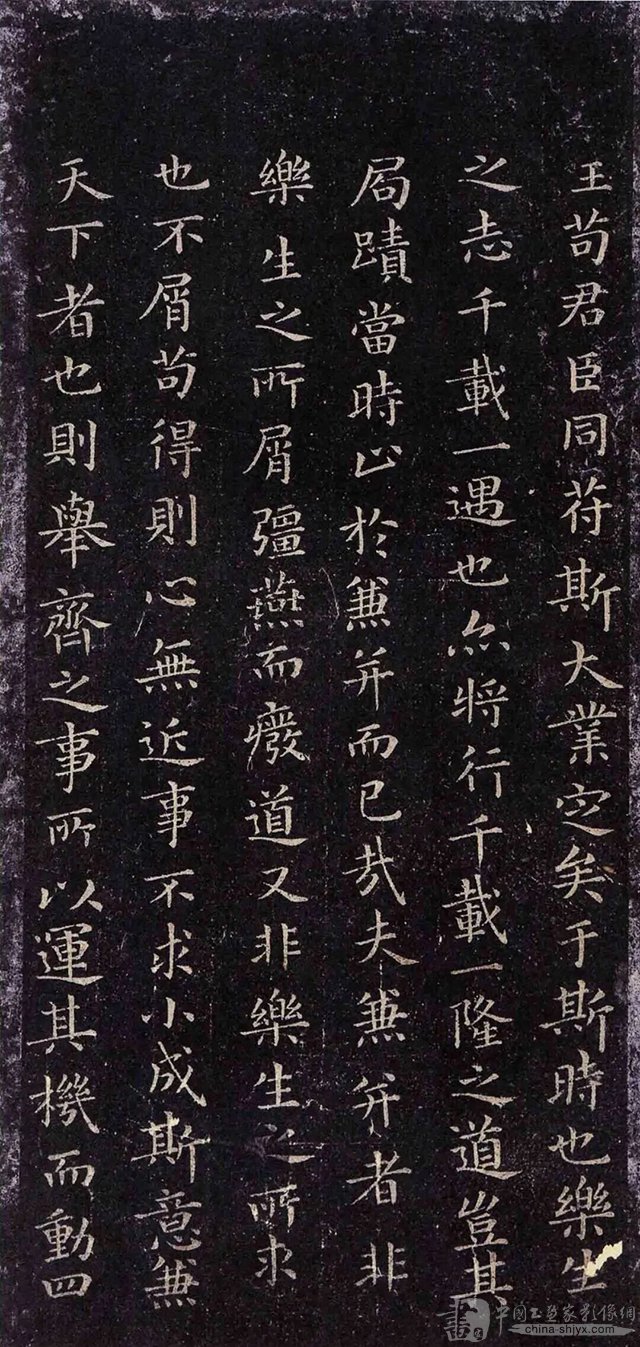 王苟君臣同苻斯大業定矣于斯時也樂生
之志千載一遇也亦将行千載一隆之道豈其
局蹟當時止於兼并而已哉夫兼并者非
樂生之所屑彊燕而癈道又非樂生之所求
也不屑苟得則心無近事不求小成斯意兼
天下者也則舉齊之事所以運其機而動四
中國工藝家影像網
china-shjyx.com